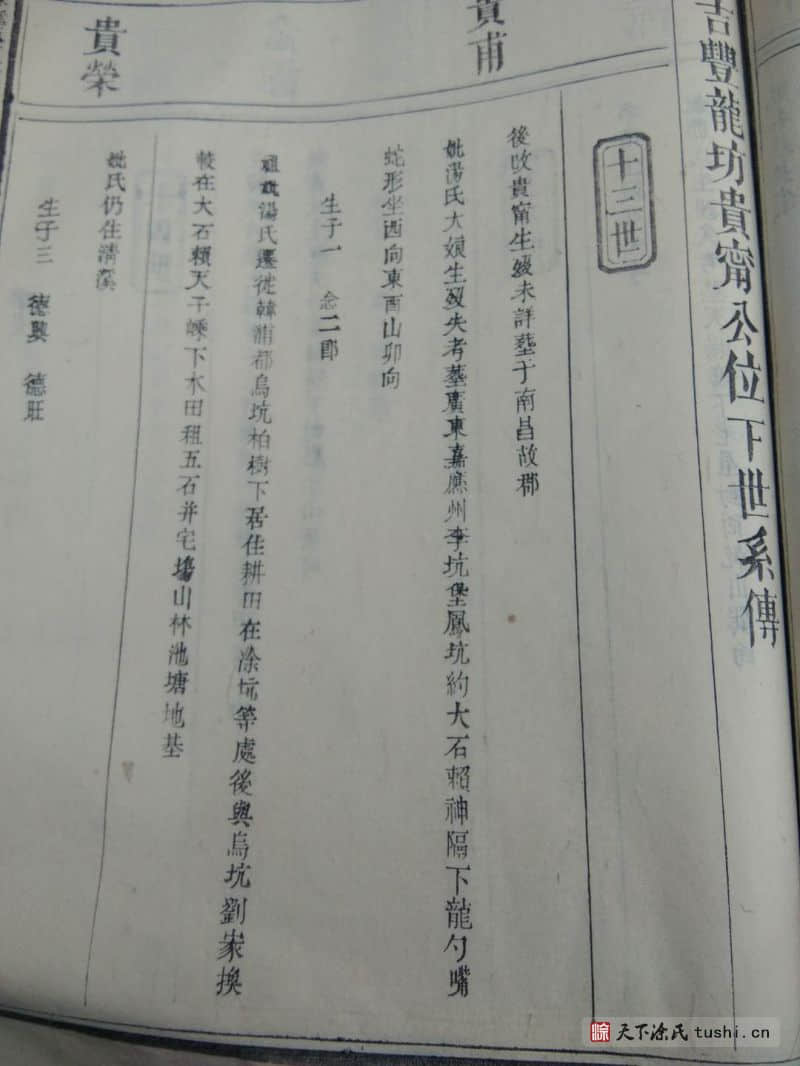 吉豐龍坊貴甯公位下世系傳
十三世
貴甫
後改貴甯生歿未詳塟于南昌故郡
妣湯氏大娘生歿失考墓廣東嘉應州李坑堡鳳坑約大石賴神隔下龍勺嘴
蛇形坐西向東酉山卯向
生子一 念二郎
祖妣湯氏遷徙韓浦都烏坑柏樹下居住耕田在涂坑等處後與烏坑劉家換
較在大石賴天子嵊下水田租五石并宅塲山林池塘地基
貴榮
妣氏仍住清溪
生子三 德興 德旺
天下涂氏 tushi.cn